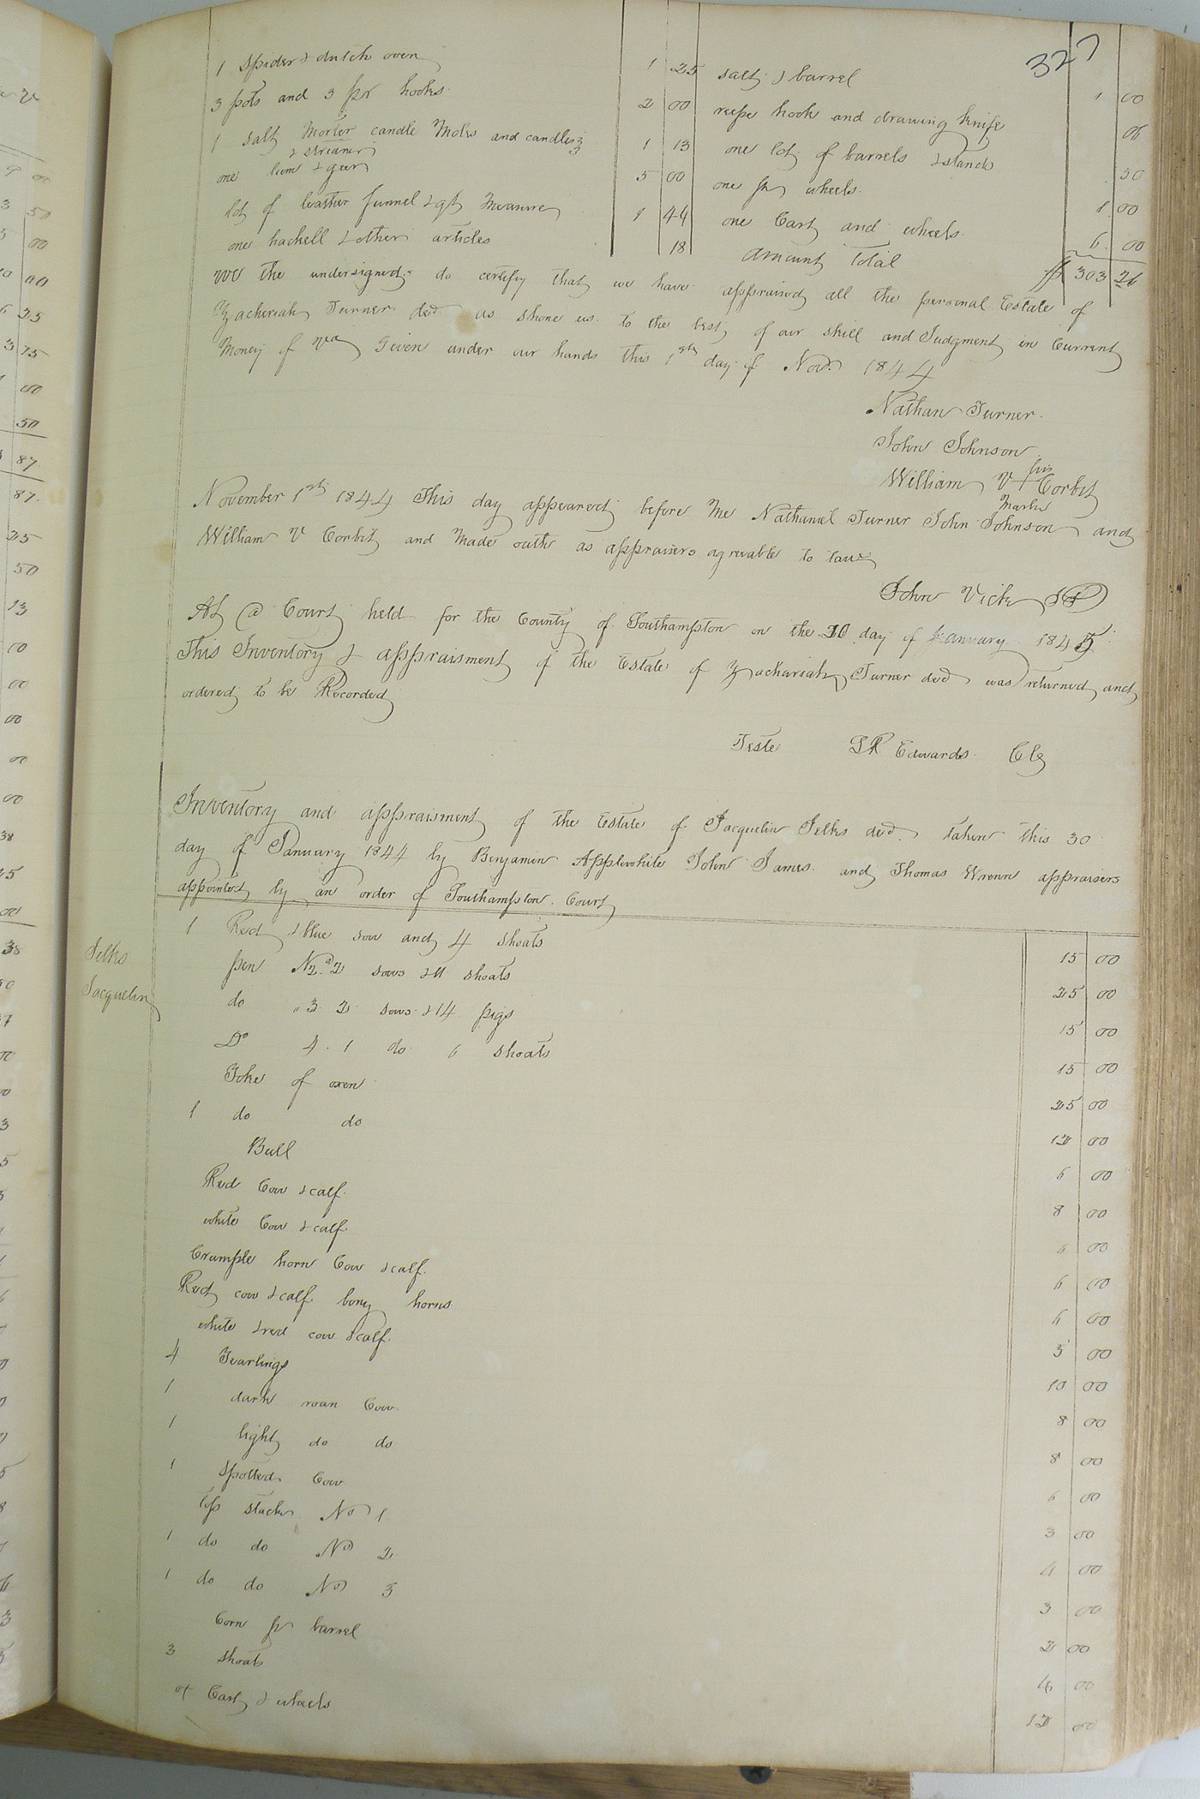 327
1 Spider & dutch oven 1 25 salt & barrel 1 00
3 pots and 3 pr hooks 2 00 reepe hook and drawing knife 08
1 salt Morter candle Molds and candles & streaner 1 13 one lot of barrels & stands 50
one loom & geer 5 00 one pr wheels 1 00
lot of leather funnel & qt Measure 1 44 one Cart and wheels 6 00
one hackell & other articles 18 Amount Total $303 26
We the undersigned do certify that we have appraised all the personal Estate of
Zachariah Turner decd as shone us to the best of our skill and Judgment in Current
Money of Va Given under our hands this 1st day of Novr 1844
Nathan Turner
John Johnson
William V his + Mark Corbit
November 1st 1844 This day appeared before Me Nathanal Turner John Johnson and
William V Corbit and Made oath as appraisers agreeable to law
John Vick JP
At @ Court held for the County of Southampton on the 20 day of January 1845
This Inventory & appraisment of the Estate of Zachariah Turner decd was returned and
ordered to be Recorded
Teste LR Edwards Clk
Inventory and appraisment of the Estate of Jacquelin Selks decd taken this 30
day of January 1844 by Benjamin Applewhite John James and Thomas Wrenn appraisers
appointed by an order of Southampton Court
Selks
Jacquelin
1 Red & blue sow and 4 shoats 15 00
pen No 2. 2 sows & 11 shoats 25 00
do " 3 2 sows & 14 pigs 15 00
Do 4. 1 do 6 shoats 15 00
Yoke of oxen 25 00
1 do do 12 00
Bull 6 00
Red Cow & calf 8 00
white Cow & calf 6 00
Crumple horn Cow & calf 6 00
Red cow & calf horns 6 00
white & red cow & calf 5 00
4 Yearlings 10 00
1 dark roan Cow 8 00
1 light do do 8 00
1 Spotted Cow 6 00
top stack No 1 3 00
1 do do No 2 4 00
1 do do No 3 3 00
Corn pr barrel 2 00
3 shoats 4 00
ox Cart & wheels 12 00